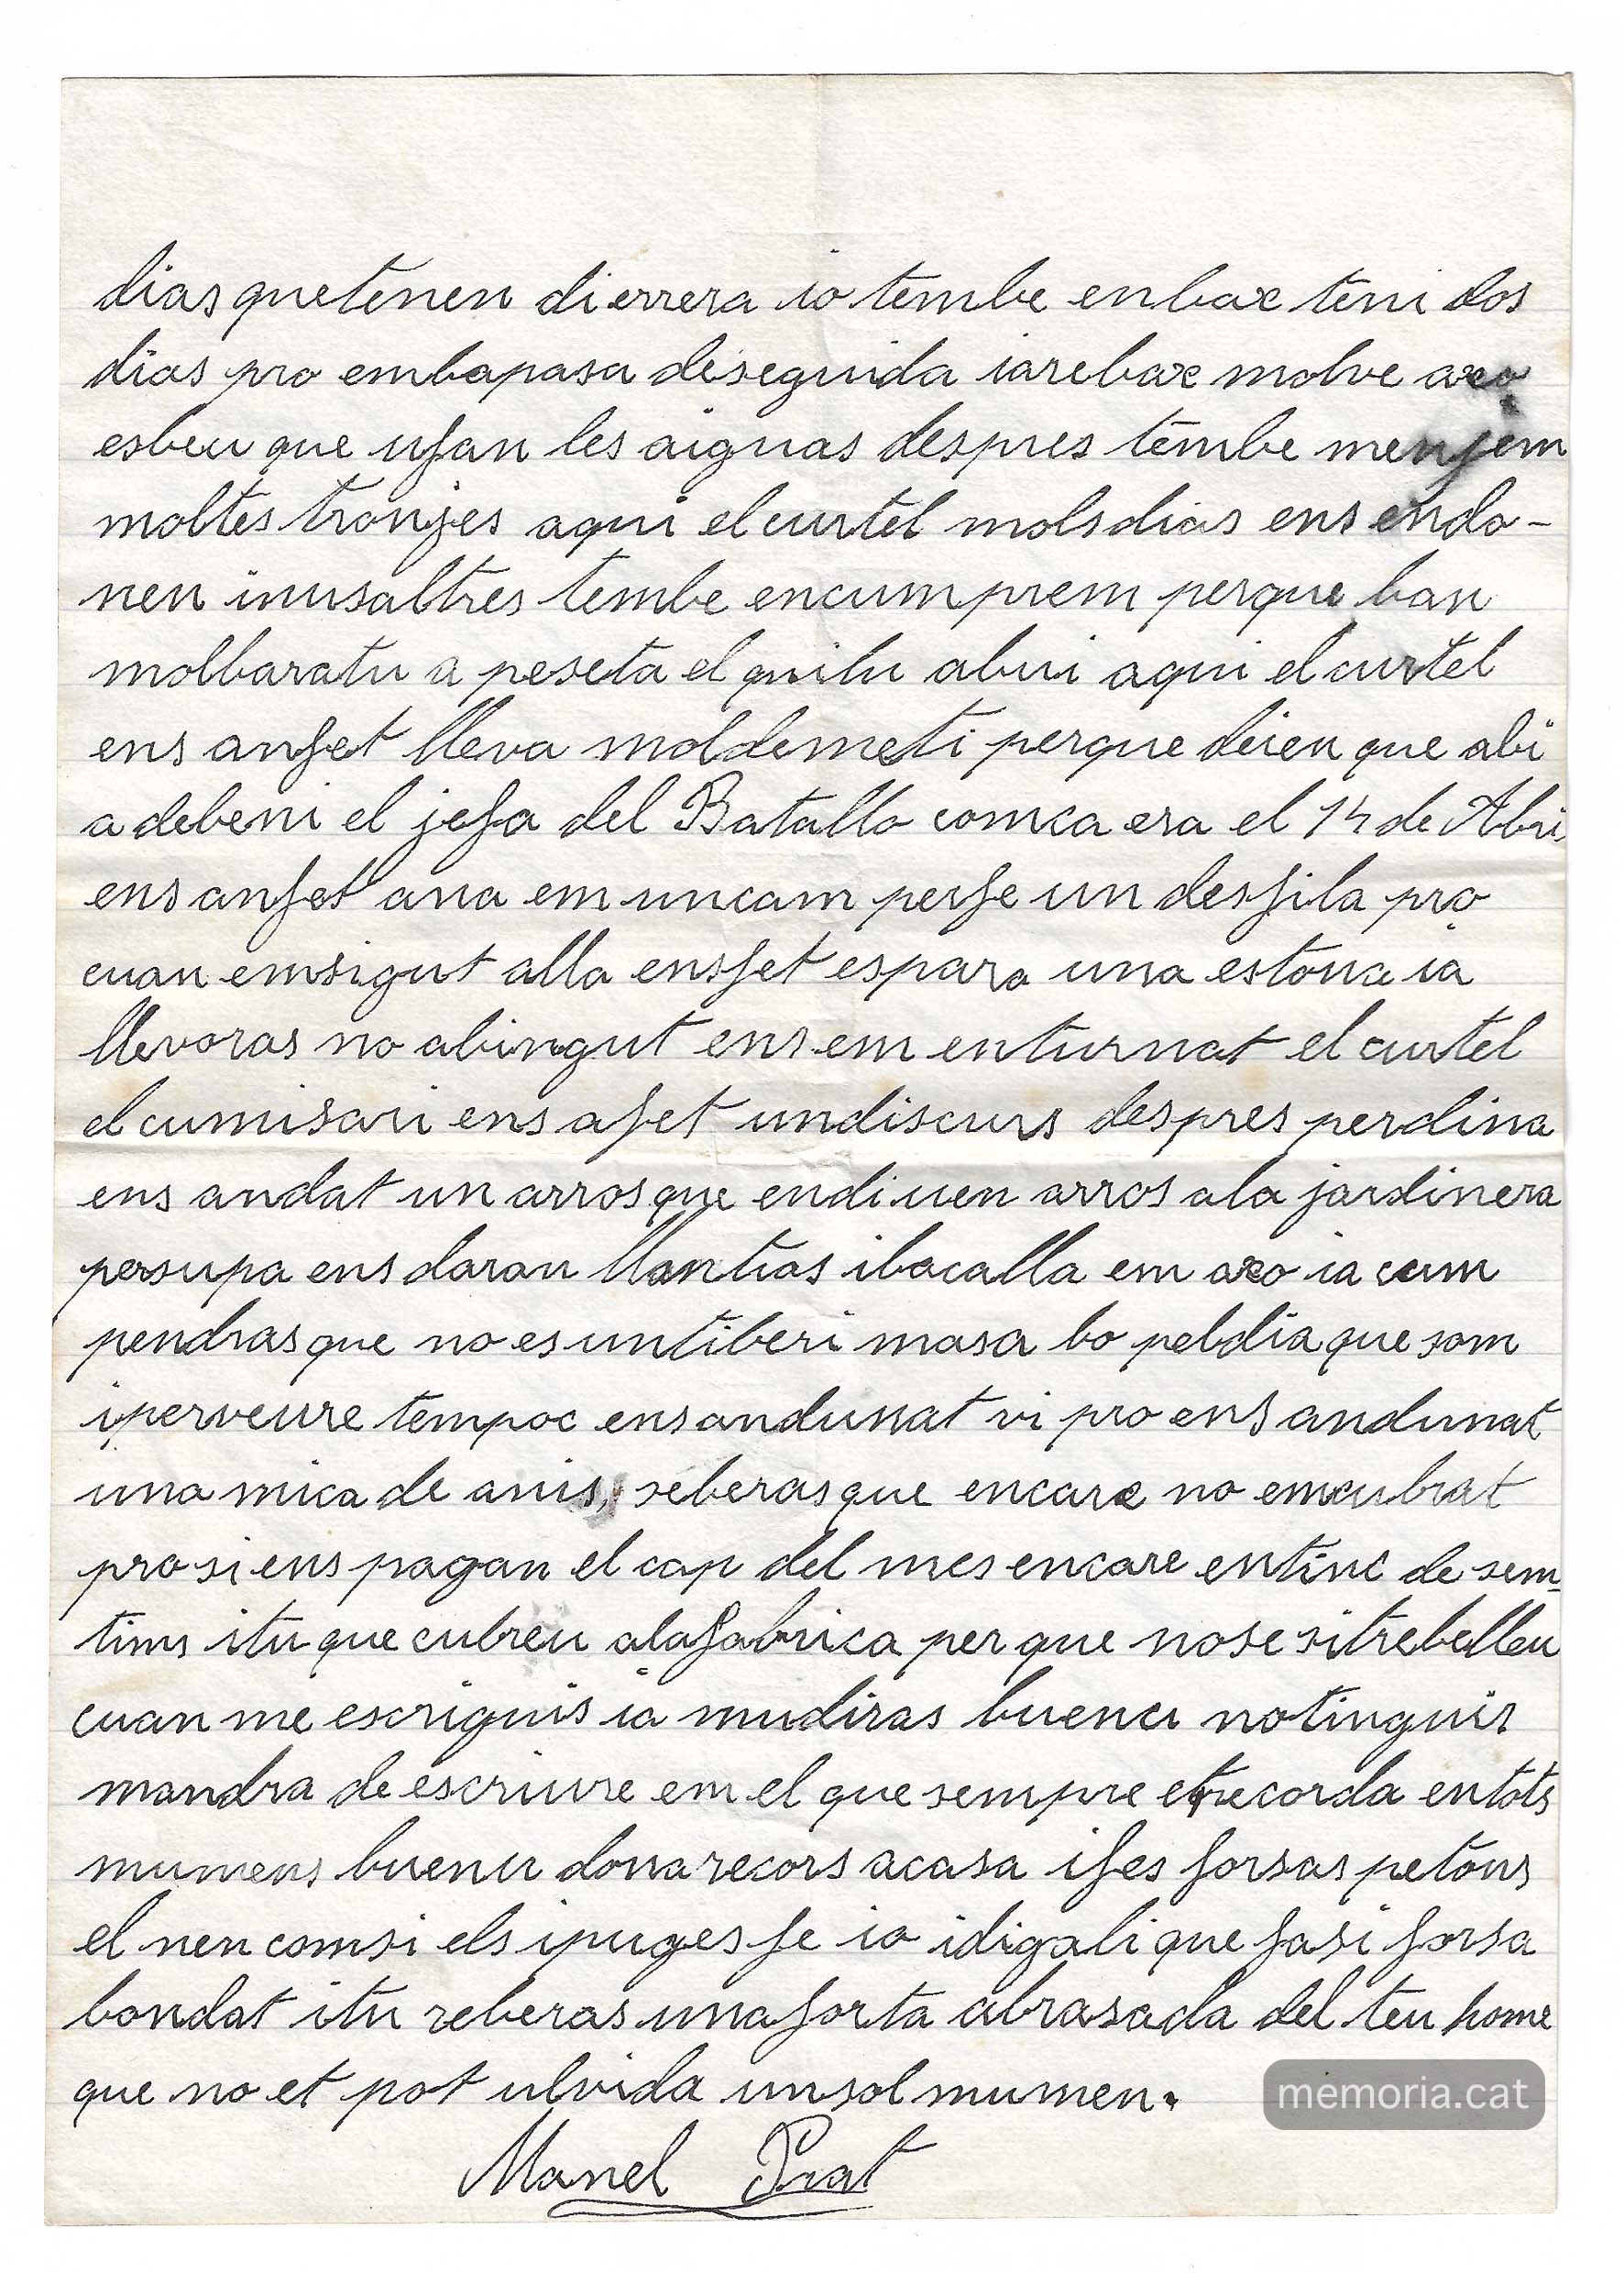 dias que tenen dierrera io tembe enbax teni dos
dias pro embapasa deseguida iarebax molve axo
esbeu que ufan les aiguas despres tembe menjem
moltes tronjes aqui el curtel mols dias ens endo-
nen inusaltres tembe encumprem perque ban
molbaratu a peseta el quilu abui aqui el curtel
ens anfet lleva moldemeti perque deien que abi
a debeni el jefa del Batallo comca era el 14 de Abri
ens anfet ana em uncam perfe un desfila pro
cuan emsigut alla ensfet espara una estona ia
llevoras no abingut ens em enturnat el curtel
el cumisari ens afet undiscurs despres perdina
ens andat un arros que endiuen arros ala jardinera
persupa ens daran llantias ibacalla em axo ia cum
pendras que no es untiberi masa bo peldia que som
iperveure tempoc ensandunat vi pro ens andunat
una mica de anis, seberas que encare no emcubrat
pro si ens pagan el cap del mes encare entinc de sem
tims itu que cubreu alafabrica per que nose sitrebelleu
cuan me escriguis ia mudiras buenu notinguis
mandra de escriure em el que sempre etrecorda entots
mumens buenu dona recors acasa ifes forsas petons
el nen comsi els ipuges fe io idigali que fasi forsa
bondat itu reberas unaforta abrasada del teu home
que no et pot ulvida unsol mumen.
Manel Prat
memoria.cat